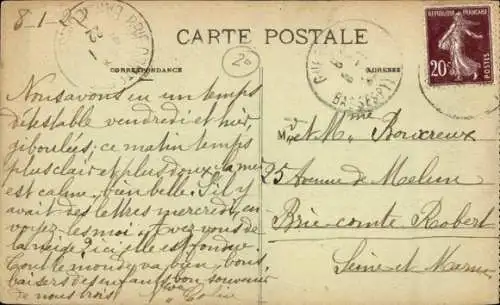 8-1-
CARTE POSTALE
CORRESPONDANCE
ADRESSE
RÉPUBLIQUE FRANÇAISE
20c
POSTES
Nous avons eu un temps
détestable vendredi et hier,
giboulées; ce matin temps
plus clair et plus doux la mer
est calme, bien belle. S'il y
avait des lettres mercredi, en
voyez les moi. Avez-vous de
la neige? ici elle est fondue.
Tout le monde va bien, bons
baisers des enfants bon souvenir
de nous trois
Mr et Mme Bouxreux
25 Avenue de Melun
Brie-comte Robert
Seine-et-Marne